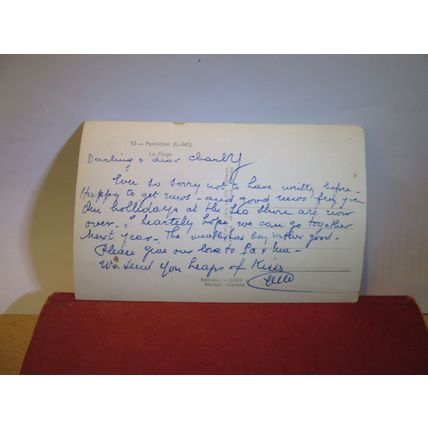 13 — Pornichet (L.-Inf.)
La Plage
Darling & dear Charly
Ever so sorry not to have written before -
Happy to get news - and good news from you
Our hollidays at the sea shore are now
over - I heartely hope we can go together
next year - The weather has been rather good -
Please give our love to Pa & Ma -
We send you heaps of Kiss